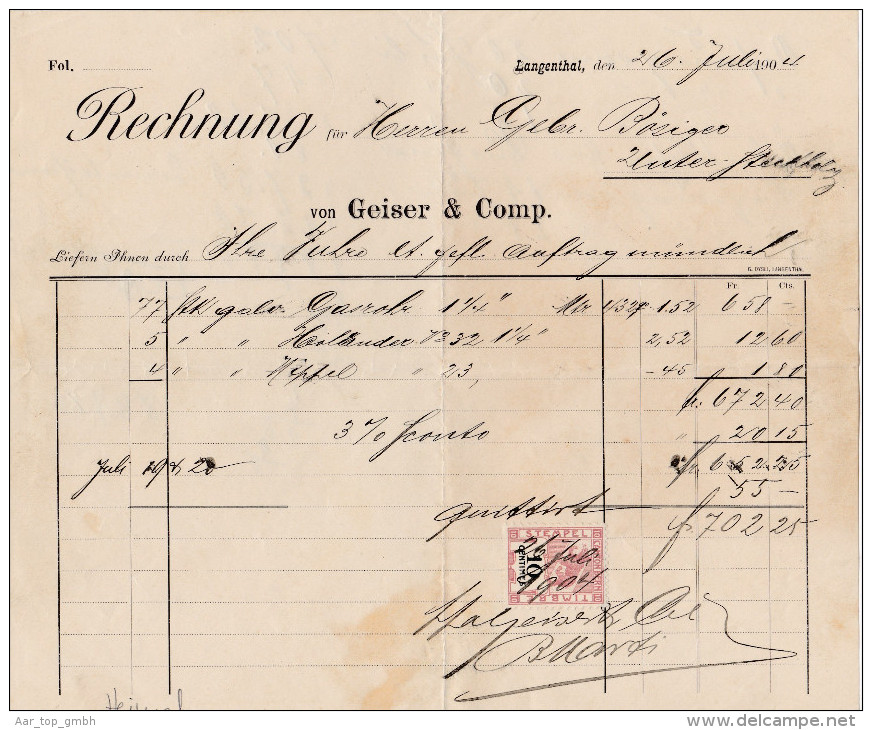 Fol.
Langenthal, den 26. Juli 1904
Rechnung für Herren Gebr. Bösiger
Unter-Steckholz
von Geiser & Comp.
Liefern Ihnen durch Ihre Fuhre lt. gefl. Auftrag mündlich
LANGENTHAL
Fr. Cts.
77 Stk galv. Gasrohr 1 1/4" Mtr 1.52 658 –
5 " " Holländer No 32 1 1/4" 2,52 12 60
4 " " " 23, -45 1 80
fr. 672 40
3 % Sconto " 20 15
Juli 19 & 20 fr. 652 25
55 –
quittirt fr. 702 25
STEMPEL
26 Juli
10
CENTIMES
1904
TIMBRE
Aar_top_gmbh
www.delcampe.net